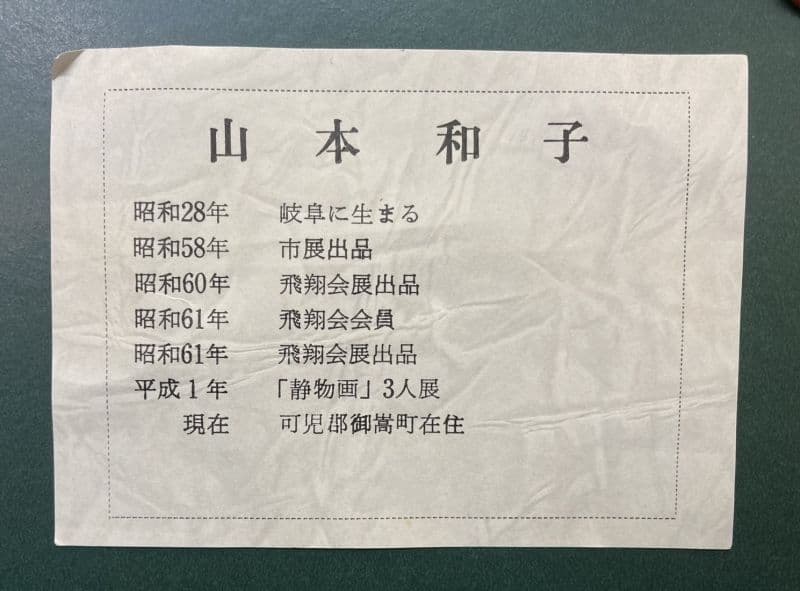 山本和子
昭和28年 岐阜に生まる
昭和58年 市展出品
昭和60年 飛翔会展出品
昭和61年 飛翔会会員
昭和61年 飛翔会展出品
平成1年 「静物画」3人展
現在 可児郡御嵩町在住